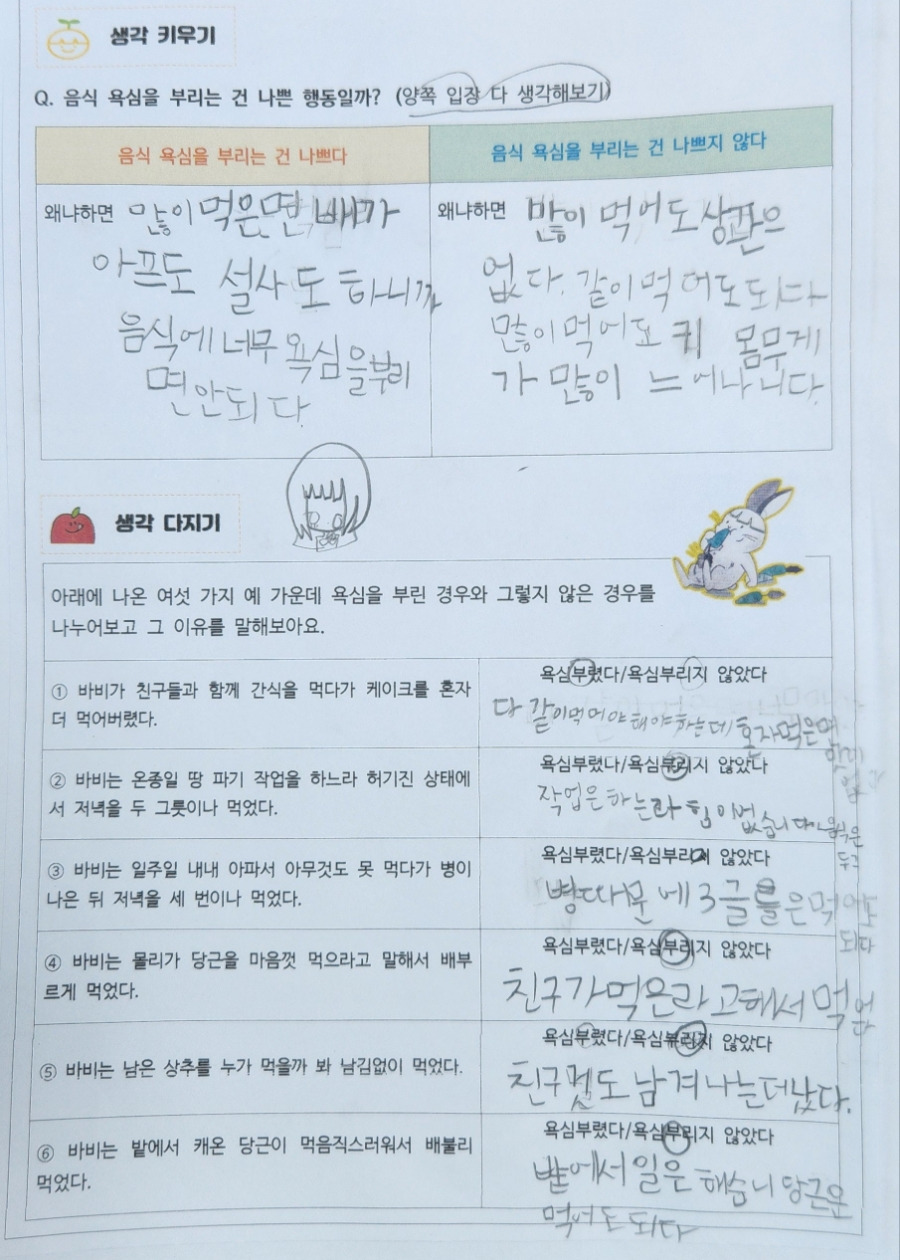 생각 키우기
Q. 음식 욕심을 부리는 건 나쁜 행동일까? (양쪽 입장 다 생각해보기)
음식 욕심을 부리는 건 나쁘다
왜냐하면 많이 먹은면 배가
아프도 설사 도 하니까
음식에 너무 욕심을부리
면안되다.
음식 욕심을 부리는 건 나쁘지 않다
왜냐하면 많이 먹어도 상관은
없다. 같이먹어도되다
많이먹어도 키 몸무게
가 많이 느어나니다.
생각 다지기
아래에 나온 여섯 가지 예 가운데 욕심을 부린 경우와 그렇지 않은 경우를
나누어보고 그 이유를 말해보아요.
① 바비가 친구들과 함께 간식을 먹다가 케이크를 혼자
더 먹어버렸다.
욕심부렸다/욕심부리지 않았다
다 같이먹어야 해야하는데 혼자먹은면
② 바비는 온종일 땅 파기 작업을 하느라 허기진 상태에
서 저녁을 두 그릇이나 먹었다.
욕심부렸다/욕심부리지 않았다
작업은하는라 힘이없습니다
③ 바비는 일주일 내내 아파서 아무것도 못 먹다가 병이
나온 뒤 저녁을 세 번이나 먹었다.
욕심부렸다/욕심부리지 않았다
병따문에 3글릇은먹어도
되다
④ 바비는 몰리가 당근을 마음껏 먹으라고 말해서 배부
르게 먹었다.
욕심부렸다/욕심부리지 않았다
친구가먹은라고해서 먹었다
⑤ 바비는 남은 상추를 누가 먹을까 봐 남김없이 먹었다.
욕심부렸다/욕심부리지 않았다
친구 남겨나는더났다.
⑥ 바비는 밭에서 캐온 당근이 먹음직스러워서 배불리
먹었다.
욕심부렸다/욕심부리지 않았다
밭에서 일은 해습니 당근은
먹어도 되다